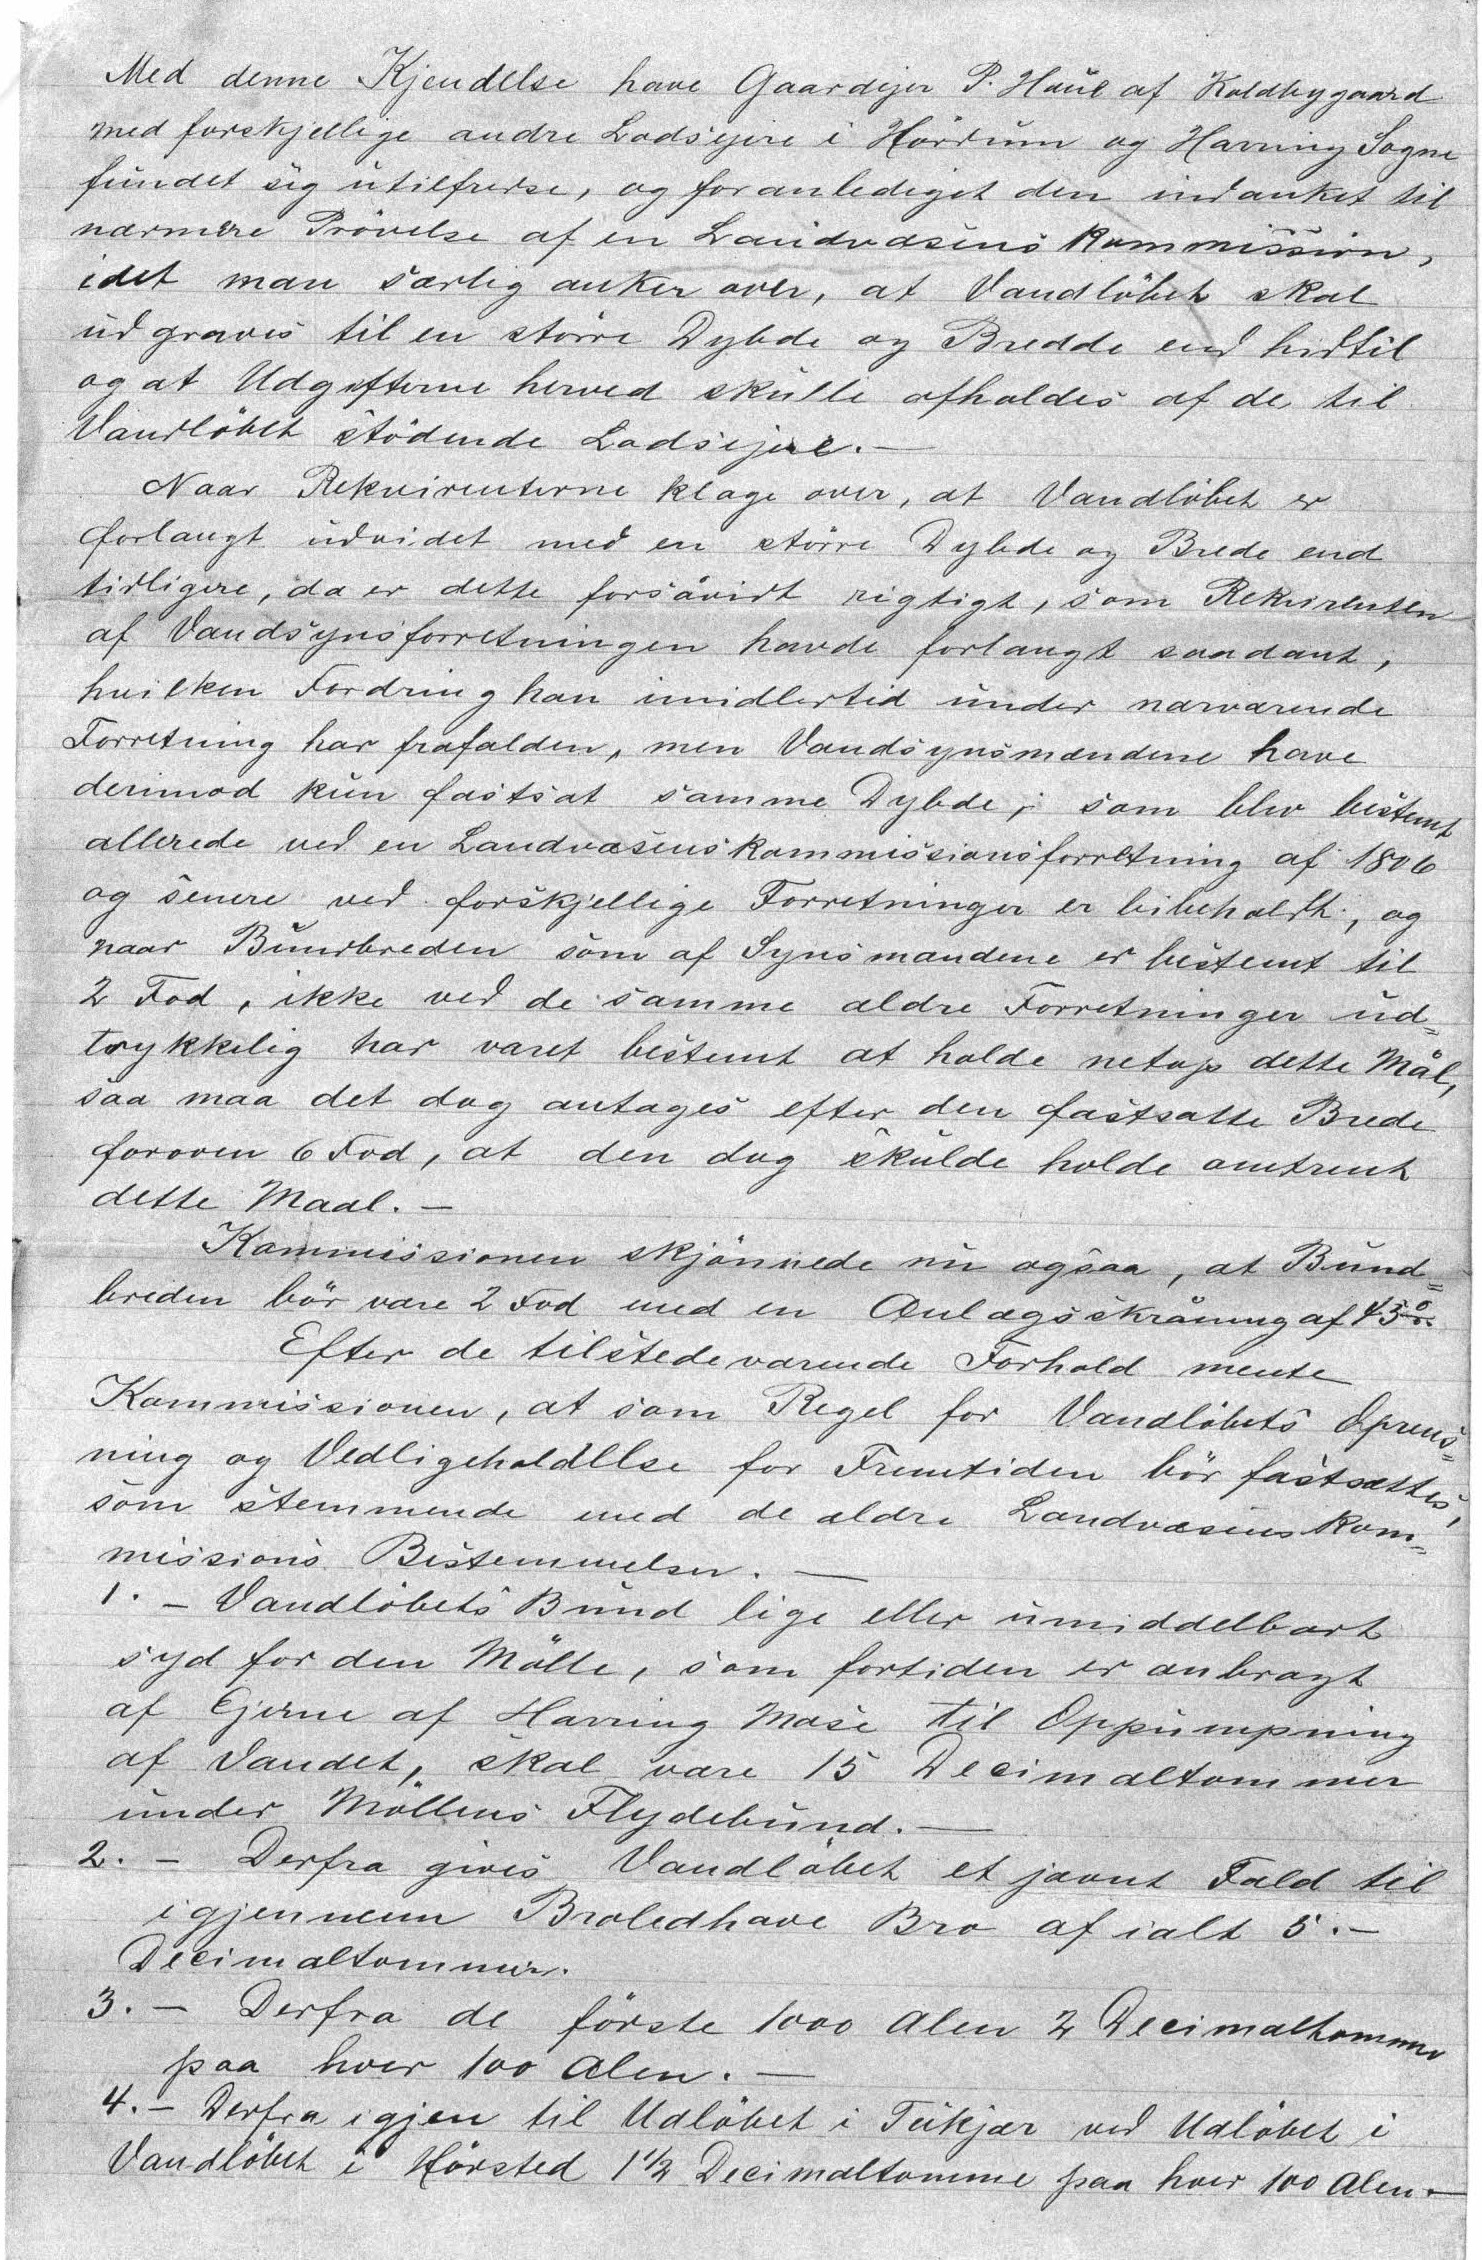 Med denne Kjendelse have Gaardejer P. Huul af Koldbygaard
med forskjellige andre Lodsejere i Hördum og Harring Sogne
fundet sig utilfredse, og foranlediget den indanket til
nærmere Prövelse af en Landvæsens Kommission,
idet man særlig anker over, at Vandlöbet skal
udgraves til en större Dybde og Bredde end hidtil
og at Udgifterne herved skulle afholdes af de til
Vandlöbet stödende Lodsejere.—
Naar Rekvirenterne klage over, at Vandlöbet er
forlangt udvidet med en större Dybde og Brede end
tidligere, da er dette forsåvidt rigtigt, som Rekvirenten
af Vandsynsforretningen havde forlangt saadant,
hvilken Fordring han imidlertid under nærværende
Forretning har frafalden, men Vandsynsmændene have
derimod kun fastsat samme Dybde, som blev bestemt
allerede ved en Landvæsenskommissionsforretning af 1806
og senere ved forskjellige Forretninger er bibeholdt, og
naar Bundbreden som af Synsmændene er bestemt til
2 Fod, ikke ved de samme ældre Forretninger ud=
trykkelig har været bestemt at holde netop dette Mål,
saa maa det dog antages efter den fastsatte Brede
foroven 6 Fod, at den dog skulde holde omtrent
dette Maal.—
Kommissionen skjönnede nu ogsaa, at Bund=
breden bör være 2 Fod med en Anlægsskråning af 45°.
Efter de tilstedeværende Forhold mente
Kommissionen, at som Regel for Vandlöbets Oprens=
ning og Vedligeholdelse for Fremtiden bör fastsættes,
som stemmende med de ældre Landvæsens Kom=
missions Bestemmelser.—
1.- Vandlöbets Bund lige eller umiddelbart
syd for den Mölle, som fortiden er anbragt
af Ejerne af Harring Mose til Oppumpning
af Vandet, skal være 15 Decimaltommer
under Möllens Flydebund.—
2.- Derfra gives Vandlöbet et jævnt Fald til
igjennem Broledhave Bro af ialt 5.-
Decimaltommer.
3.- Derfra de förste 1000 Alen 2 Decimaltomme
paa hver 100 Alen.—
4.- Derfra igjen til Udlöbet i Tukjær ved Udlöbet i
Vandlöbet i Hörsted 1½ Decimaltomme paa hver 100 Alen.—